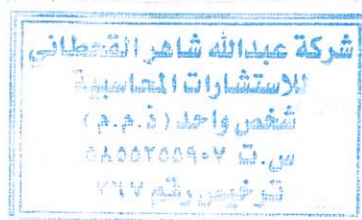 شركة عبدالله شاهر القحطاني
للاستشارات المحاسبية
شخص واحد (ذ.م.م)
س.ت ٥٨٥٥٣٥٥٩٠٧
ترخيص رقم ٣٦٧